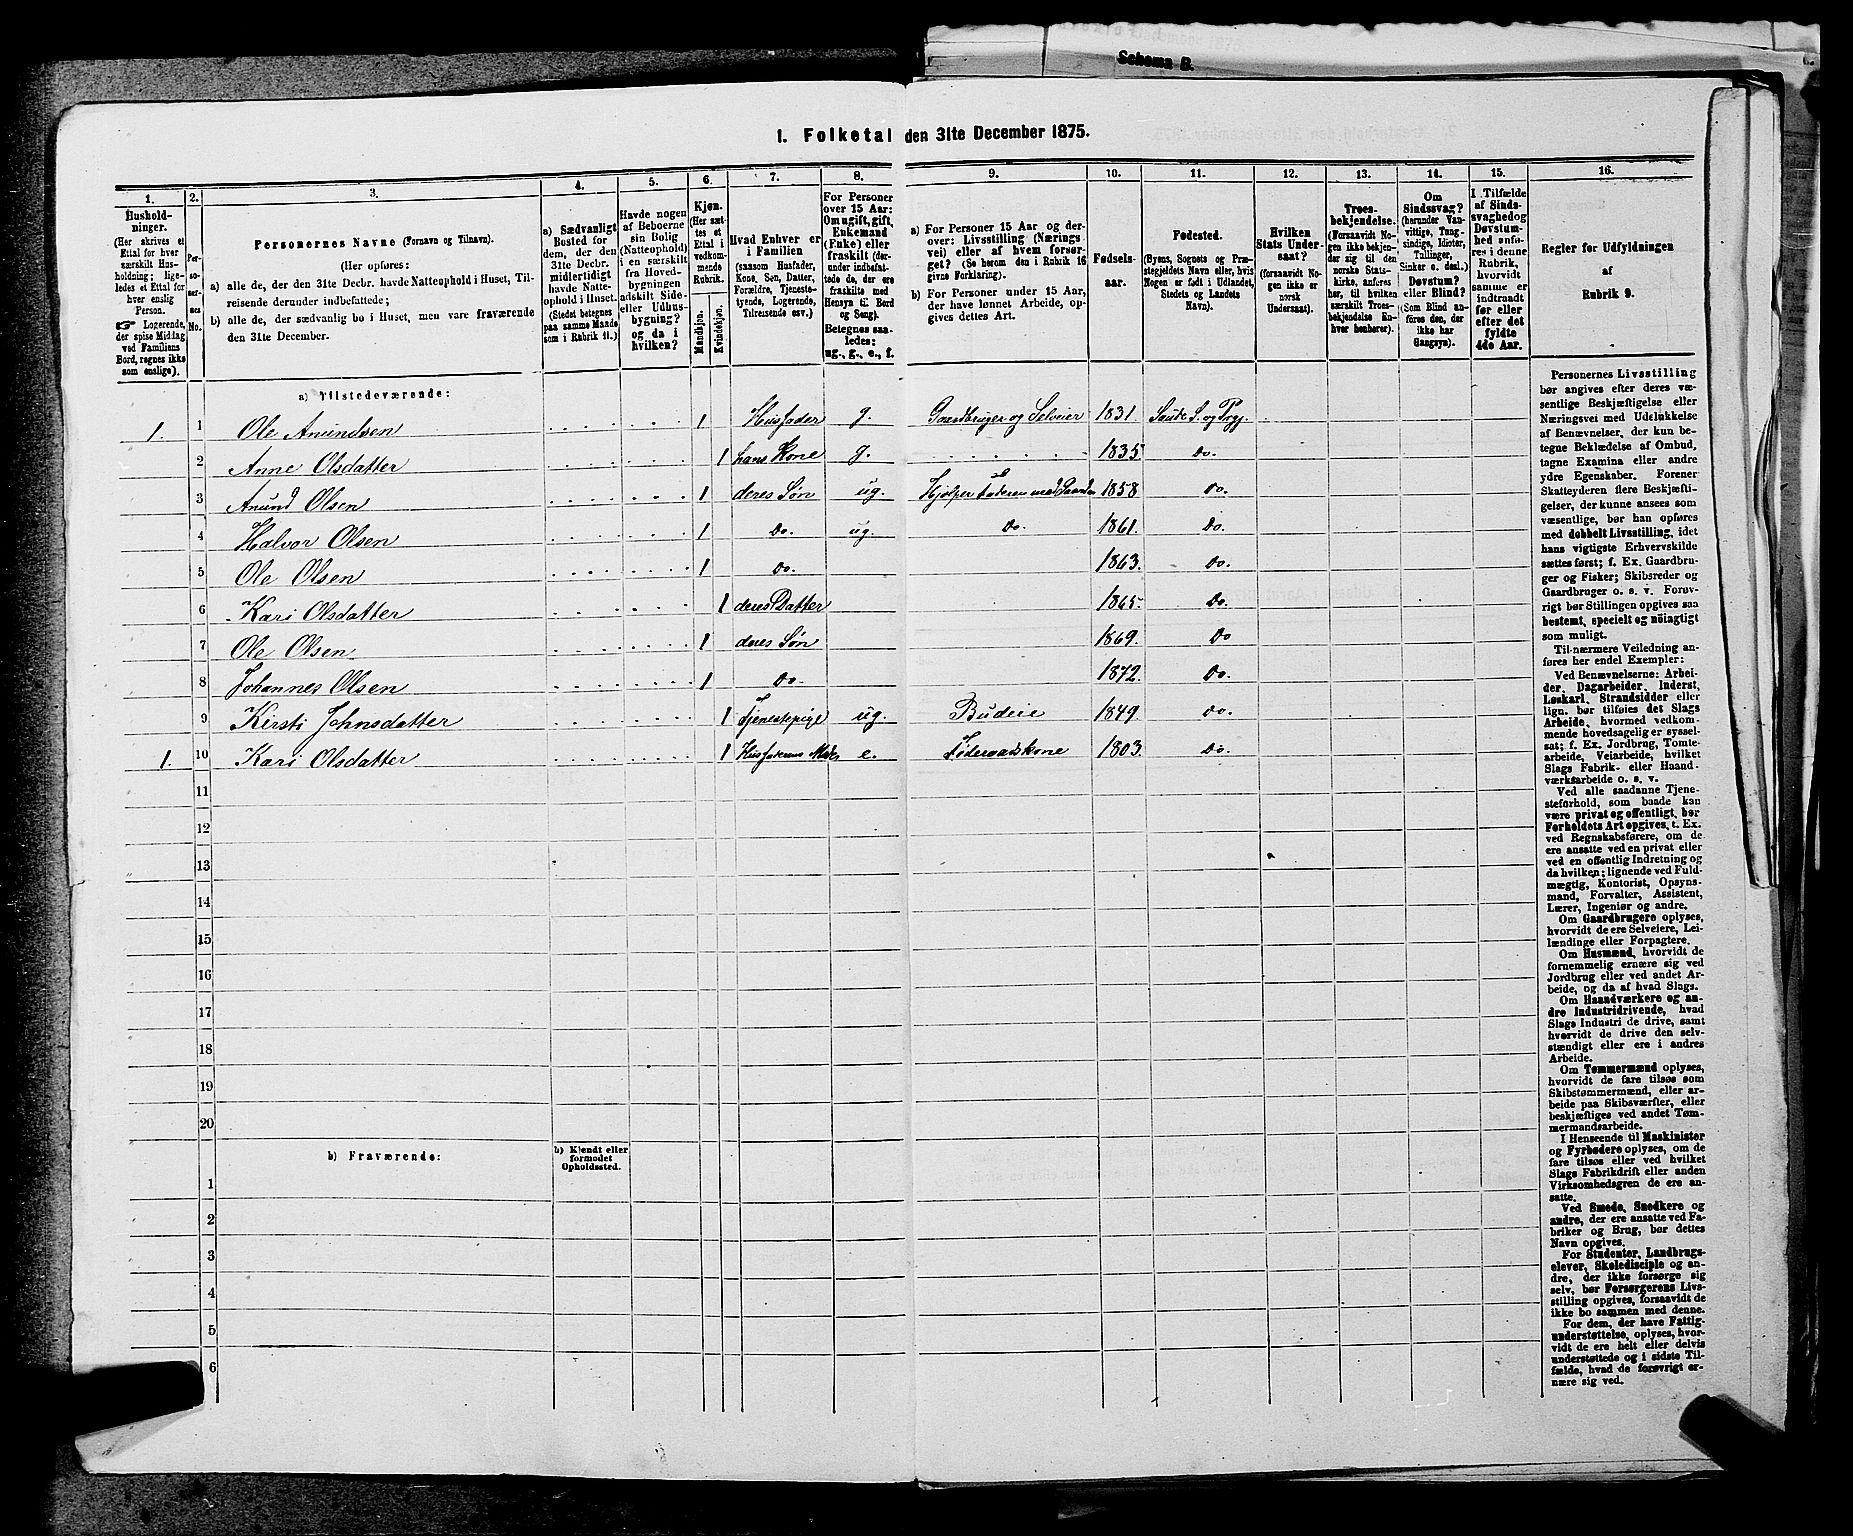 Schema B.
1. Folketal den 31te December 1875.
1. 2. 3. 4. 5. 6. 7. 8. 9. 10. 11. 12. 13. 14. 15. 16.
Hushold-
ninger.
(Her skrives et
Ettal for hver
særskilt Hus-
holdning; lige-
ledes et Ettal for
hver enslig
Person.
☞ Logerende,
der spise Middag
ved Familiens
Bord, regnes ikke
som enslige).
Per-
so-
ner-
nes
No.
Personernes Navne (Fornavn og Tilnavn).
(Her opføres:
a) alle de, der den 31te Decbr. havde Natteophold i Huset, Til-
reisende derunder indbefattede;
b) alle de, der sædvanlig bo i Huset, men vare fraværende
den 31te December.
a) Sædvanligt
Bosted for
dem, der den
31te Decbr.
midlertidigt
havde Natte-
ophold i Huset.
(Stedet betegnes
paa samme Maade
som i Rubrik 11.)
Havde nogen
af Beboerne
sin Bolig
(Natteophold)
i en særskilt
fra Hoved-
bygningen
adskilt Side-
eller Udhus-
bygning?
og da i
hvilken?
Kjøn.
(Her sæt-
tes et
Ettal i
vedkom-
mende
Rubrik.
Mandkjøn.
Kvindekjøn.
Hvad Enhver er
i Familien
(saasom Husfader,
Kone, Søn, Datter,
Forældre, Tjeneste-
tyende, Logerende,
Tilreisende osv.)
For Personer
over 15 Aar:
Om ugift, gift,
Enkemand
(Enke) eller
fraskilt (der-
under indbefat-
tede de, der ere
fraskilte med
Hensyn til Bord
og Seng).
Betegnes saa-
ledes:
ug., g., e., f.
a) For Personer 15 Aar og der-
over: Livsstilling (Nærings
vei) eller af hvem forsør-
get? (Se herom den i Rubrik 16
givne Forklaring).
b) For Personer under 15 Aar,
der have lønnet Arbeide, op-
gives dettes Art.
Fødsels-
aar.
Fødested.
(Byens, Sognets og Præ-
stegjeldets Navn eller, hvis
Nogen er født i Udlandet,
Stedets og Landets
Navn).
Hvilken
Stats Under-
saat?
(forsaavidt No-
gen ikke er
norsk
Undersaat).
Troes-
bekjendelse.
(Forsaavidt No-
gen ikke bekjen-
der sig til den
norske Stats-
kirke, anføres
her, til hvilken
særskilt Troes-
bekjendelse En-
hver henhører).
Om
Sindssvag?
(herunder Van-
vittige, Tung-
sindige, Idioter,
Tullinger,
Sinker o. desl.)
Døvstum?
eller Blind?
(Som Blind an-
føres den, der
ikke har
Gangsyn).
I Tilfælde
af Sinds-
svaghed og
Døvstum-
hed anfø-
res i denne
Rubrik,
hvorvidt
samme er
indtraadt
før eller
efter det
fyldte
4de Aar.
Regler for Udfyldningen
af
Rubrik 9.
a) Tilstedeværende:
1. 1 Ole Amundsen 1 Husfader g. Gaardbruger og Selveier 1831. Saude S. og Prgj.
2 Anne Olsdatter 1 hans Kone g. 1835 Do.
3 Amund Olsen 1 deres Søn ug. Hjælper Faderen med Gaarden 1858 Do.
4 Halvor Olsen 1 Do. ug. Do. 1861. Do.
5 Ole Olsen 1 Do. 1863. Do.
6 Kari Olsdatter 1 deres Datter 1865. Do.
7 Ole Olsen 1 deres Søn 1869. Do
8 Johannes Olsen 1 Do. 1872. Do.
9 Kirsti Johnsdatter 1 Tjenestepige ug. Budeie 1849. Do.
1. 10 Kari Olsdatter 1 Husfaderens Moder e. Føderaadskone 1803. Do.
11
12
13
14
15
16
17
18
19
20
b) Fraværende:
b) Kjendt eller
formodet
Opholdssted.
1
2
3
4
5
6
Personernes Livsstilling
bør angives efter deres væ-
sentlige Beskjæftigelse eller
Næringsvei med Udelukkelse
af Benævnelser, der kun be-
tegne Beklædelse af Ombud,
tagne Examina eller andre
ydre Egenskaber. Forener
Skatteyderen flere Beskjæfti-
gelser, der kunne ansees som
væsentlige, bør han opføres
med dobbelt Livsstilling, idet
hans vigtigste Erhvervskilde
sættes først; f. Ex. Gaardbru-
ger og Fisker; Skibsreder og
Gaardbruger o. s. v. Forøv-
rigt bør Stillingen opgives saa
bestemt, specielt og nøiagtigt
som muligt.
Til nærmere Veiledning an-
føres her endel Exempler:
Ved Benævnelserne: Arbei-
der, Dagarbeider, Inderst,
Løskarl, Strandsidder eller
lign. bør tilføies det Slags
Arbeide, hvormed vedkom-
mende hovedsagelig er syssel-
sat; f. Ex. Jordbrug, Tomte-
arbeide, Veiarbeide, hvilket
Slags Fabrik- eller Haand-
værksarbeide o. s. v.
Ved alle saadanne Tjene-
steforhold, som baade kan
være privat og offentligt, bør
Forholdets Art opgives, t. Ex.
ved Regnskabsførere, om de
ere ansatte ved en privat eller
ved en offentlig Indretning og
da hvilken; lignende ved Fuld-
mægtig, Kontorist, Opsyns-
mand, Forvalter, Assistent,
Lærer, Ingeniør og andre.
Om Gaardbrugere oplyses,
hvorvidt de ere Selveiere, Lei-
lændinge eller Forpagtere.
Om Husmænd, hvorvidt de
fornemmelig ernære sig ved
Jordbrug eller ved andet Ar-
beide, og da af hvad Slags.
Om Haandværkere og an-
dre Industridrivende, hvad
Slags Industri de drive, samt
hvorvidt de drive den selv-
stændigt eller ere i andres
Arbeide.
Om Tømmermænd oplyses,
hvorvidt de fare tilsøs som
Skibstømmermænd, eller ar-
beide paa Skibsværfter, eller
beskjæftiges ved andet Tøm-
mermandsarbeide.
I Henseende til Maskinister
og Fyrbødere oplyses, om de
fare tilsøs eller ved hvilket
Slags Fabrikdrift eller anden
Virksomhedsgren de ere an-
satte.
Ved Smede, Snedkere og
andre, der ere ansatte ved Fa-
briker og Brug, bør dettes
Navn opgives.
For Studenter, Landbrugs-
elever, Skoledisciple og an-
dre, der ikke forsørge sig
selv, bør Forsørgerens Livs-
stilling opgives, forsaavidt de
ikke bo sammen med denne.
For dem, der have Fattig-
understøttelse, oplyses, hvor-
vidt de ere helt eller delvis
understøttede og i sidste Til-
fælde, hvad de forøvrigt er-
nære sig ved.